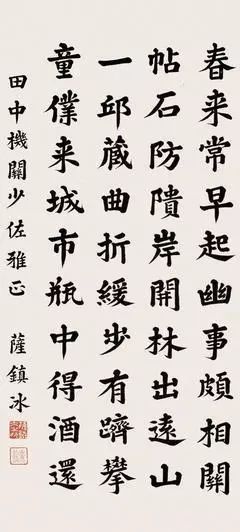 春来常早起幽事頗相關
帖石防隤岸開林出遠山
一邱藏曲折緩步有躋攀
童僕来城市瓶中得酒還
田中機關少佐雅正 薩鎮冰